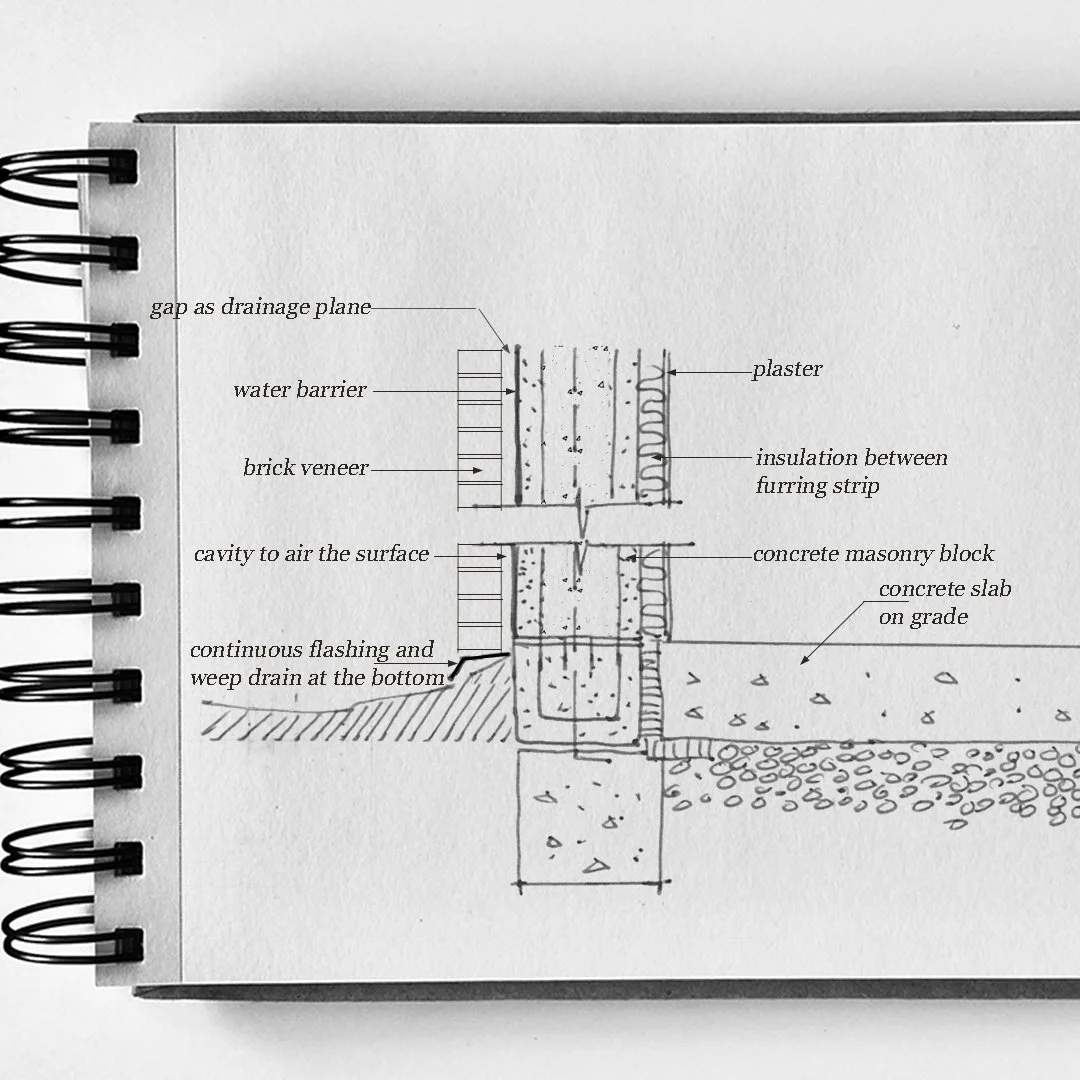 gap as drainage plane
water barrier
brick veneer
cavity to air the surface
continuous flashing and
weep drain at the bottom
plaster
insulation between
furring strip
concrete masonry block
concrete slab
on grade